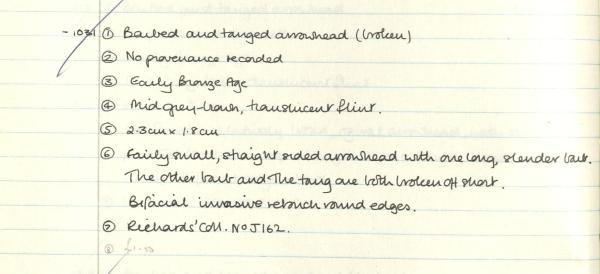 -1031 ① Barbed and tanged arrowhead (broken)
② No provenance recorded
③ Early Bronze Age
④ Mid grey-brown, translucent flint.
⑤ 2.3cm x 1.8cm
⑥ Fairly small, straight sided arrowhead with one long, slender barb.
The other barb and the tang are both broken off short.
Bifacial invasive retouch round edges.
⑦ Richards' Coll. No J162.
⑧